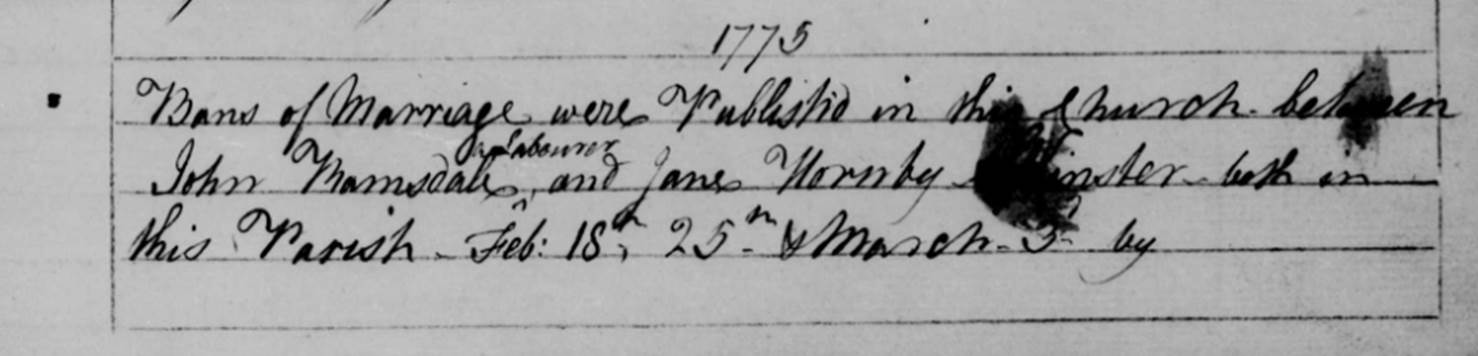 1775
Bans of Marriage were Publishd in this Church between
a Labourer
John Ramsdale, and Jane Hornby Spinster both in
this Parish. Feb: 18th, 25th & March 3d by